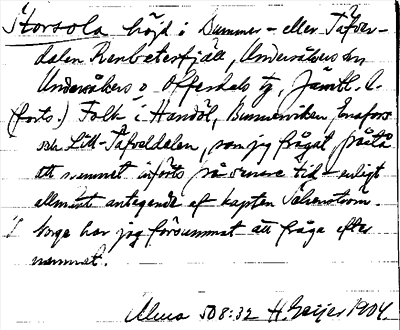 Storsola höjd i Bummer- eller Täfvel-
dalen Renbetesfjäll, Undersåkers sn
Undersåkers o. Offerdals tg, Jämtl. l.
(forts.) Folk i Handöl, Bunnerviken Enafors
och Lill-Täfveldalen, som jag frågat påstå
att namnet införts på senare tid - enligt
allmänt antagande af kapten
Norge har jag försummat att fråga efter
namnet.
Alma 50 8:32 H. Geijer 1904.